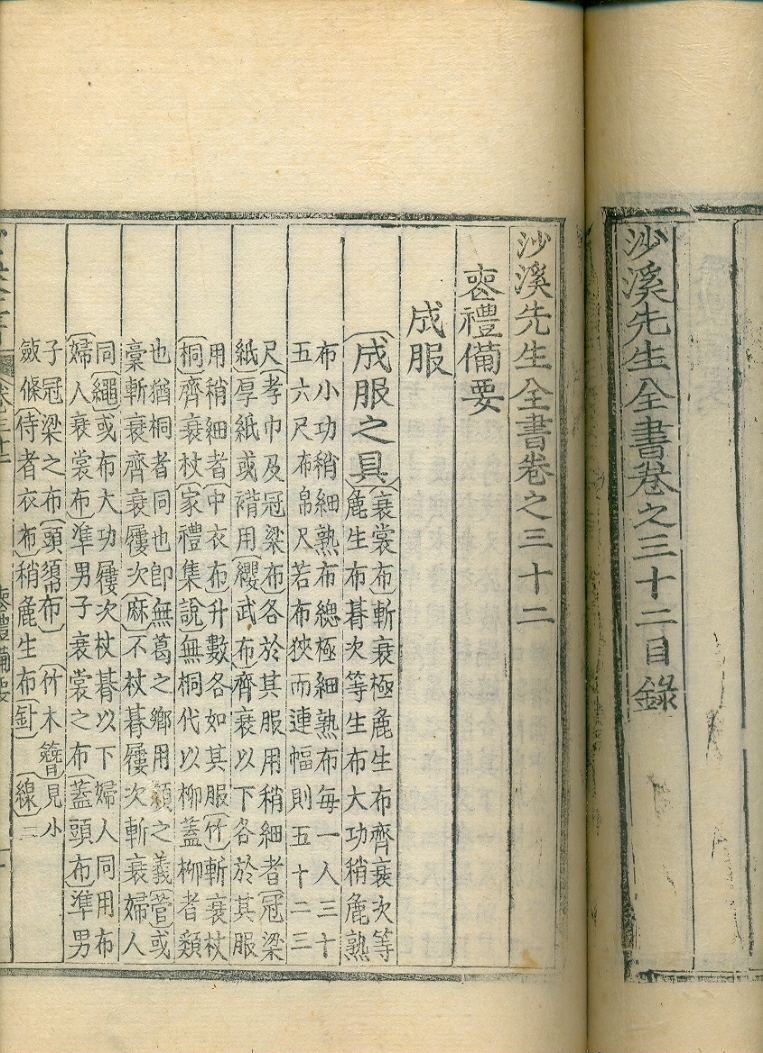 沙溪先生全書卷之三十二目錄
沙溪先生全書卷之三十二
喪禮備要
成服
成服之具
衰裳布斬衰極麁生布齊衰次等
麁生布朞次等生布大功稍麁熟
布小功稍細熟布緦極細熟布每一人三十
五六尺布帛尺若布狹而連幅則五十二三
尺孝巾及冠梁布各於其服用稍細者冠梁
紙厚紙或褙用纓武布齊衰以下各於其服
用稍細者中衣布升數各如其服竹斬衰杖
桐齊衰杖家禮集說無桐代以柳蓋柳者類
也猶桐者同也卽無葛之鄕用顈之義菅或
藁斬衰齊衰屨次麻不杖朞屨次斬衰婦人
同繩或布大功屨次杖朞以下婦人同用布
婦人衰裳布準男子衰裳之布蓋頭布準男
子冠梁之布頭𢄼布竹木簪見小
斂條侍者衣布稍麁生布針線二
卷之三十二
喪禮備要